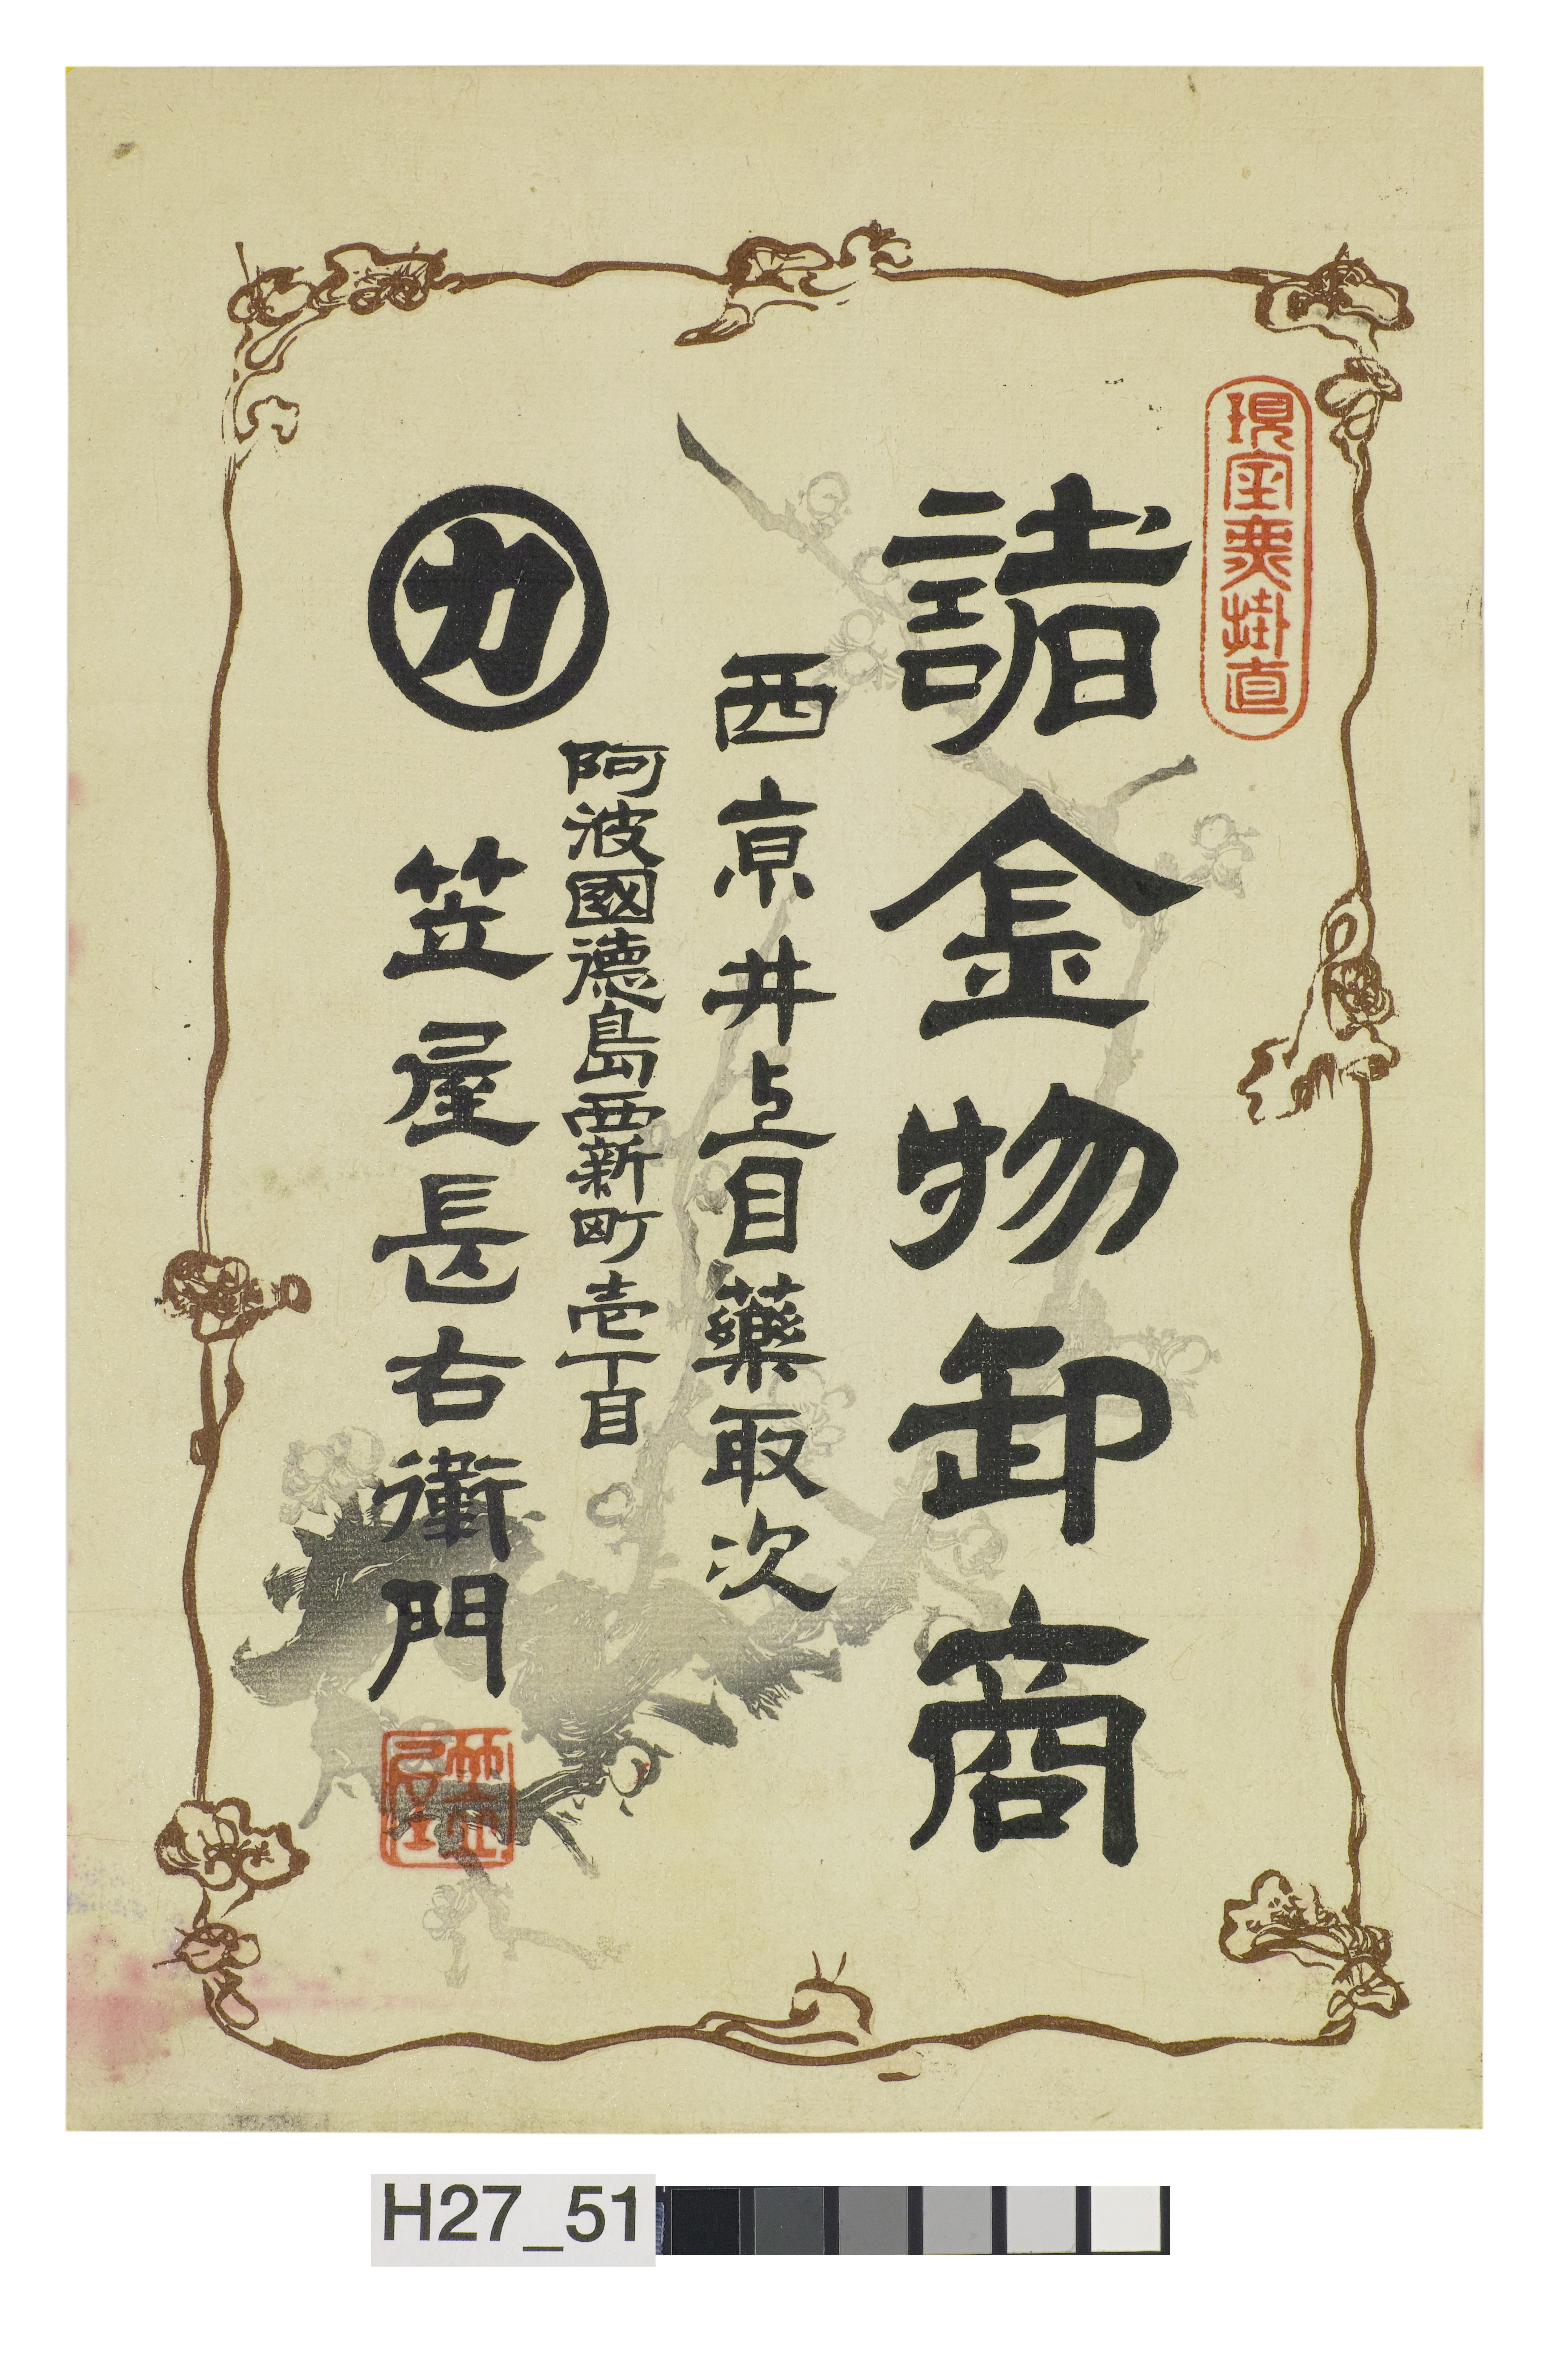 現金無掛直
諸金物卸商
西亰井上目藥取次
阿波國徳島西新町壱丁目
カ 笠屋長右衛門
笠屋
H27_51